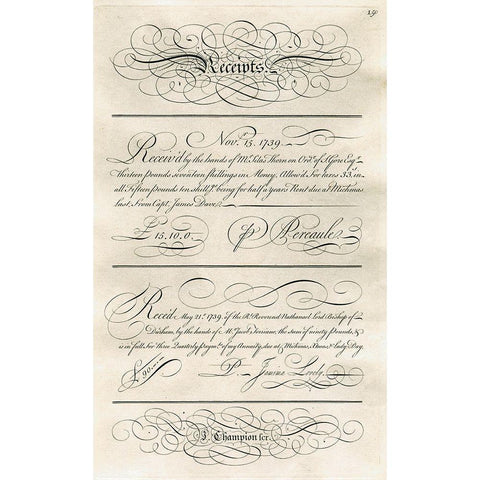 19
Receipts.
Nov.r 15. 1739
Receiv'd by the hands of Mr. Silas Thorn on Ord.r of Esq.r
Thirteen Pounds seventeen Shillings in Money. Allow'd For Taxes 33.s in
all Fifteen Pounds ten Shill.s being for half a Years Rent due at Mich'mas
last From Capt. James Dave
£ 15.10.0. P Pereaule
Reced. May 21.st 1739 of the R.t Reverend Nathanael Lord Bishop of
Durham, by the hands of Mr. Jacob the sum of ninety Pounds, &
is in full for Three Quarterly Paym.ts of my Annuity, due at Mich'mas, Xmas, & Lady Day
£ 90. P. Jemma Lovely
J. Champion scr.